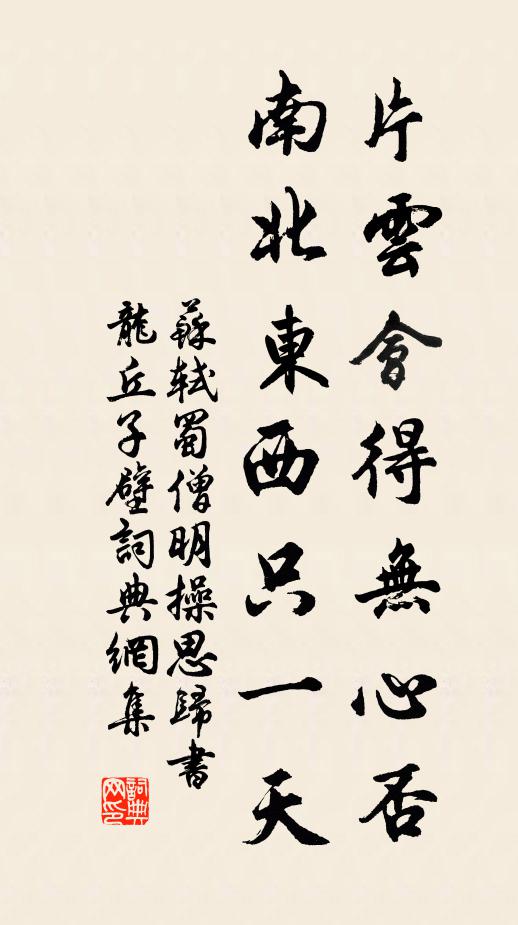 片雲會得無心否
南北東西只一天
蘇軾蜀僧明操思歸書
龍丘子壁詞典網集
詞典网印